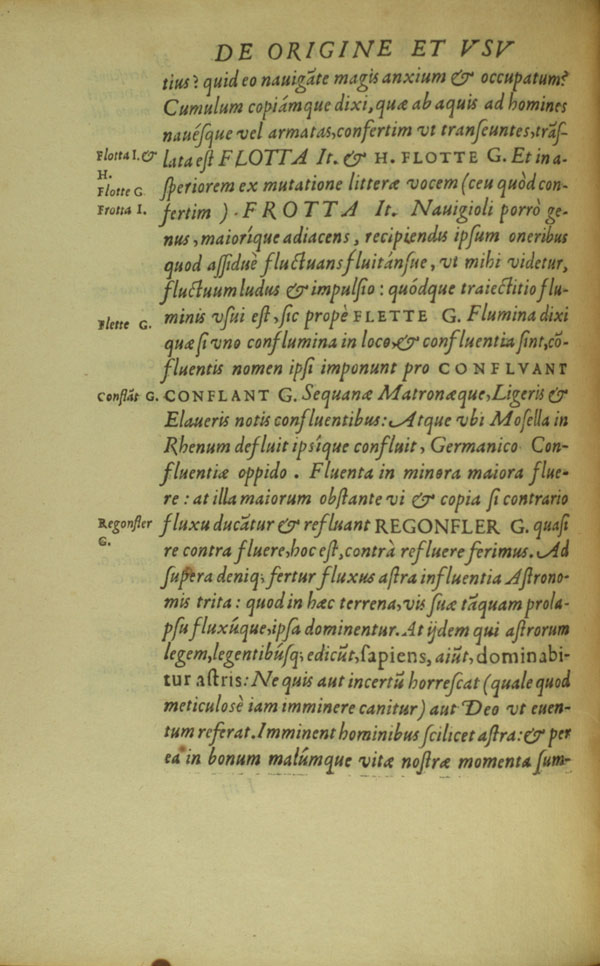 DE ORIGINE ET VSV
tius? quid eo nauigāte magis anxium & occupatum?
Cumulum copiámque dixi, quæ ab aquis ad homines
nauésque vel armatas, confertim vt transeuntes, trāſ-
Flotta I. &
H.
lata eſt FLOTTA It. & H. FLOTTE G. Et in a-
Flotte G
ſperiorem ex mutatione litteræ vocem (ceu quòd con-
Frotta I.
fertim ). FROTTA It. Nauigioli porrò ge-
nus, maioríque adiacens, recipiendis ipſum oneribus
quod aſſiduè fluctuans fluitánſue, vt mihi videtur,
fluctuum ludus & impulſio: quódque traiectitio flu-
Flette G.
minis vſui eſt, ſic propè FLETTE G. Flumina dixi
quæ ſi vno conflumina in loco, & confluentia ſint, cō-
fluentis nomen ipſi imponunt pro CONFLVANT
Conflāt G.
CONFLANT G. Sequanæ Matronæque, Ligeris &
Elaueris notis confluentibus: Atque vbi Moſella in
Rhenum defluit ipsíque confluit, Germanico Con-
fluentiæ oppido. Fluenta in minora maiora flue-
re: at illa maiorum obſtante vi & copia ſi contrario
Regonfler
G.
fluxu ducātur & refluant REGONFLER G. quaſi
re contra fluere, hoc eſt, contrà refluere ferimus. Ad
ſupera deniq; fertur fluxus aſtra influentia Aſtrono-
mis trita: quod in hæc terrena, vis ſuæ tāquam prola-
pſu fluxúque, ipſa dominentur. At ijdem qui aſtrorum
legem, legentibúſq; edicūt, ſapiens, aiūt, dominabi-
tur aſtris: Ne quis aut incertū horreſcat (quale quod
meticulosè iam imminere canitur) aut Deo vt euen-
tum referat. Imminent hominibus ſcilicet aſtra: & per
ea in bonum malúmque vitæ noſtræ momenta ſum-